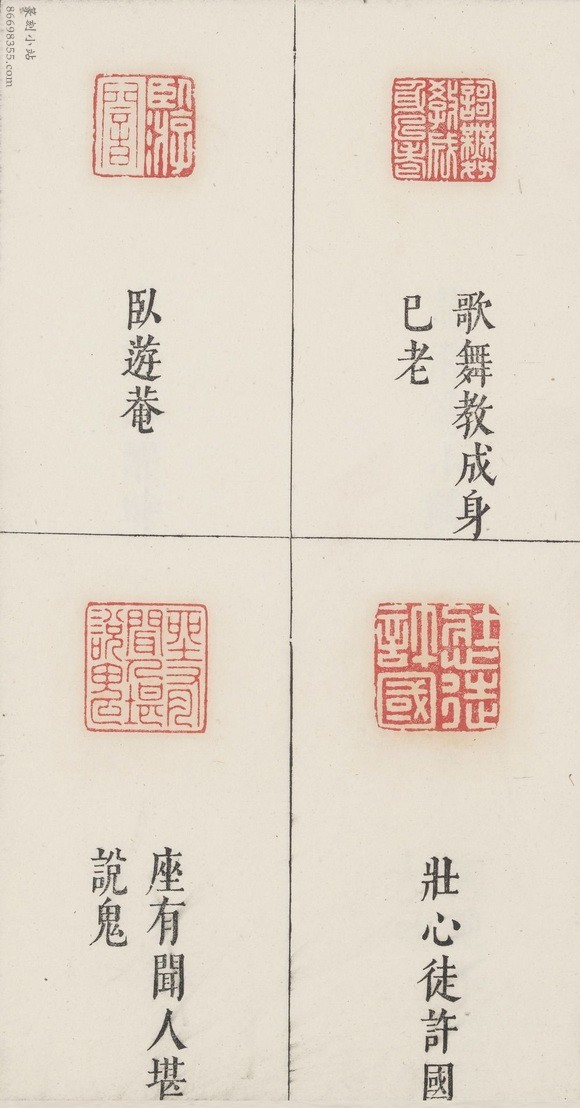 歌舞教成身
已老
臥遊菴
壯心徒許國
座有聞人堪
說鬼
篆刻小站
86698355.com